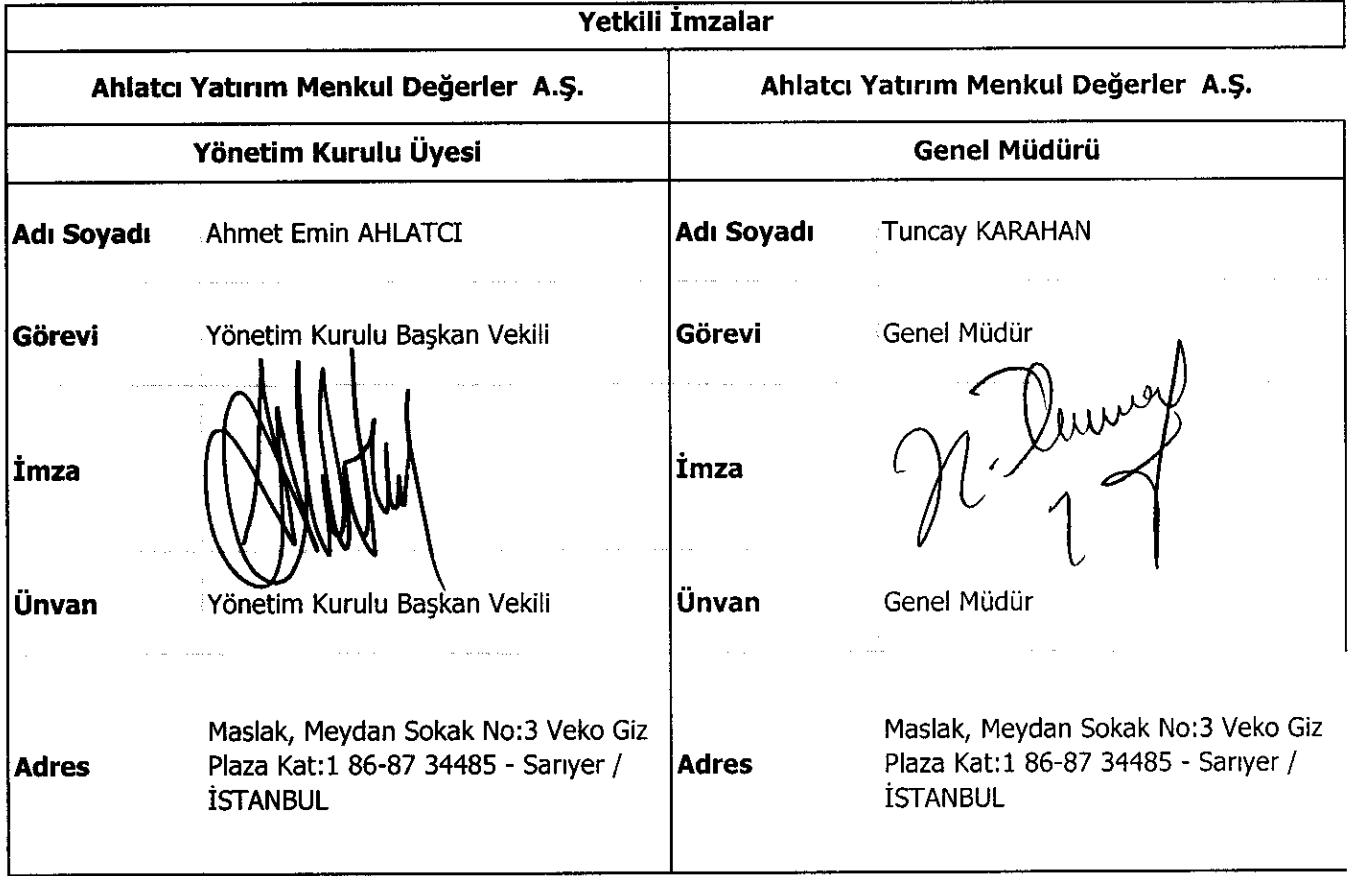 Yetkili İmzalar
Ahlatcı Yatırım Menkul Değerler A.Ş.
Ahlatcı Yatırım Menkul Değerler A.Ş.
Yönetim Kurulu Üyesi
Genel Müdürü
Adı Soyadı Ahmet Emin AHLATCI
Adı Soyadı Tuncay KARAHAN
Görevi Yönetim Kurulu Başkan Vekili
Görevi Genel Müdür
İmza
İmza
Ünvan Yönetim Kurulu Başkan Vekili
Ünvan Genel Müdür
Adres Maslak, Meydan Sokak No:3 Veko Giz
Plaza Kat:1 86-87 34485 - Sarıyer /
İSTANBUL
Adres Maslak, Meydan Sokak No:3 Veko Giz
Plaza Kat:1 86-87 34485 - Sarıyer /
İSTANBUL